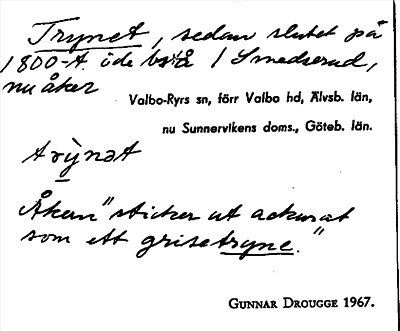 Trynet, sedan slutet på
1800-t. öde bs å 1 Smedserud,
nu åker
Valbo-Ryrs sn, förr Valbo hd, Älvsb. län,
nu Sunnervikens doms., Göteb. län.
trỳnət
Åkern "sticker ut ackurat
som ett grisetryne."
GUNNAR DROUGGE 1967.